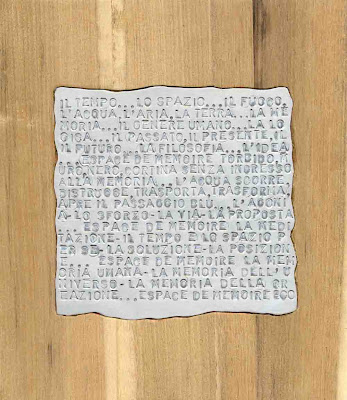 IL TEMPO...LO SPAZIO...IL FUOCO,
L'ACQUA,L'ARIA,LA TERRA...LA ME
MORIA...IL GENERE UMANO...LA LO
GICA...IL PASSATO,IL PRESENTE,IL
IL FUTURO...LA FILOSOFIA...L'IDEA
...ESPACE DE MEMOIRE TORBIDO,M
URO,NERO,CORTINA SENZA INGRESSO
ALLA MEMORIA...L'ACQUA SCORRE
DISTRUGGE,TRASPORTA,TRASFORMA,
APRE IL PASSAGGIO BLU...L'AGONI
A-LO SFORZO-LA VIA-LA PROPOSTA
ESPACE DE MEMOIRE LA MEDI
TAZIONE-IL TEMPO E LO SPAZIO P
ER SE-LA SOLUZIONE-LA POSIZION
E... ESPACE DE MEMOIRE LA MEM
ORIA UMANA-LA MEMORIA DELL'U
NIVERSO-LA MEMORIA DELLA CR
EAZIONE...ESPACE DE MEMOIRE